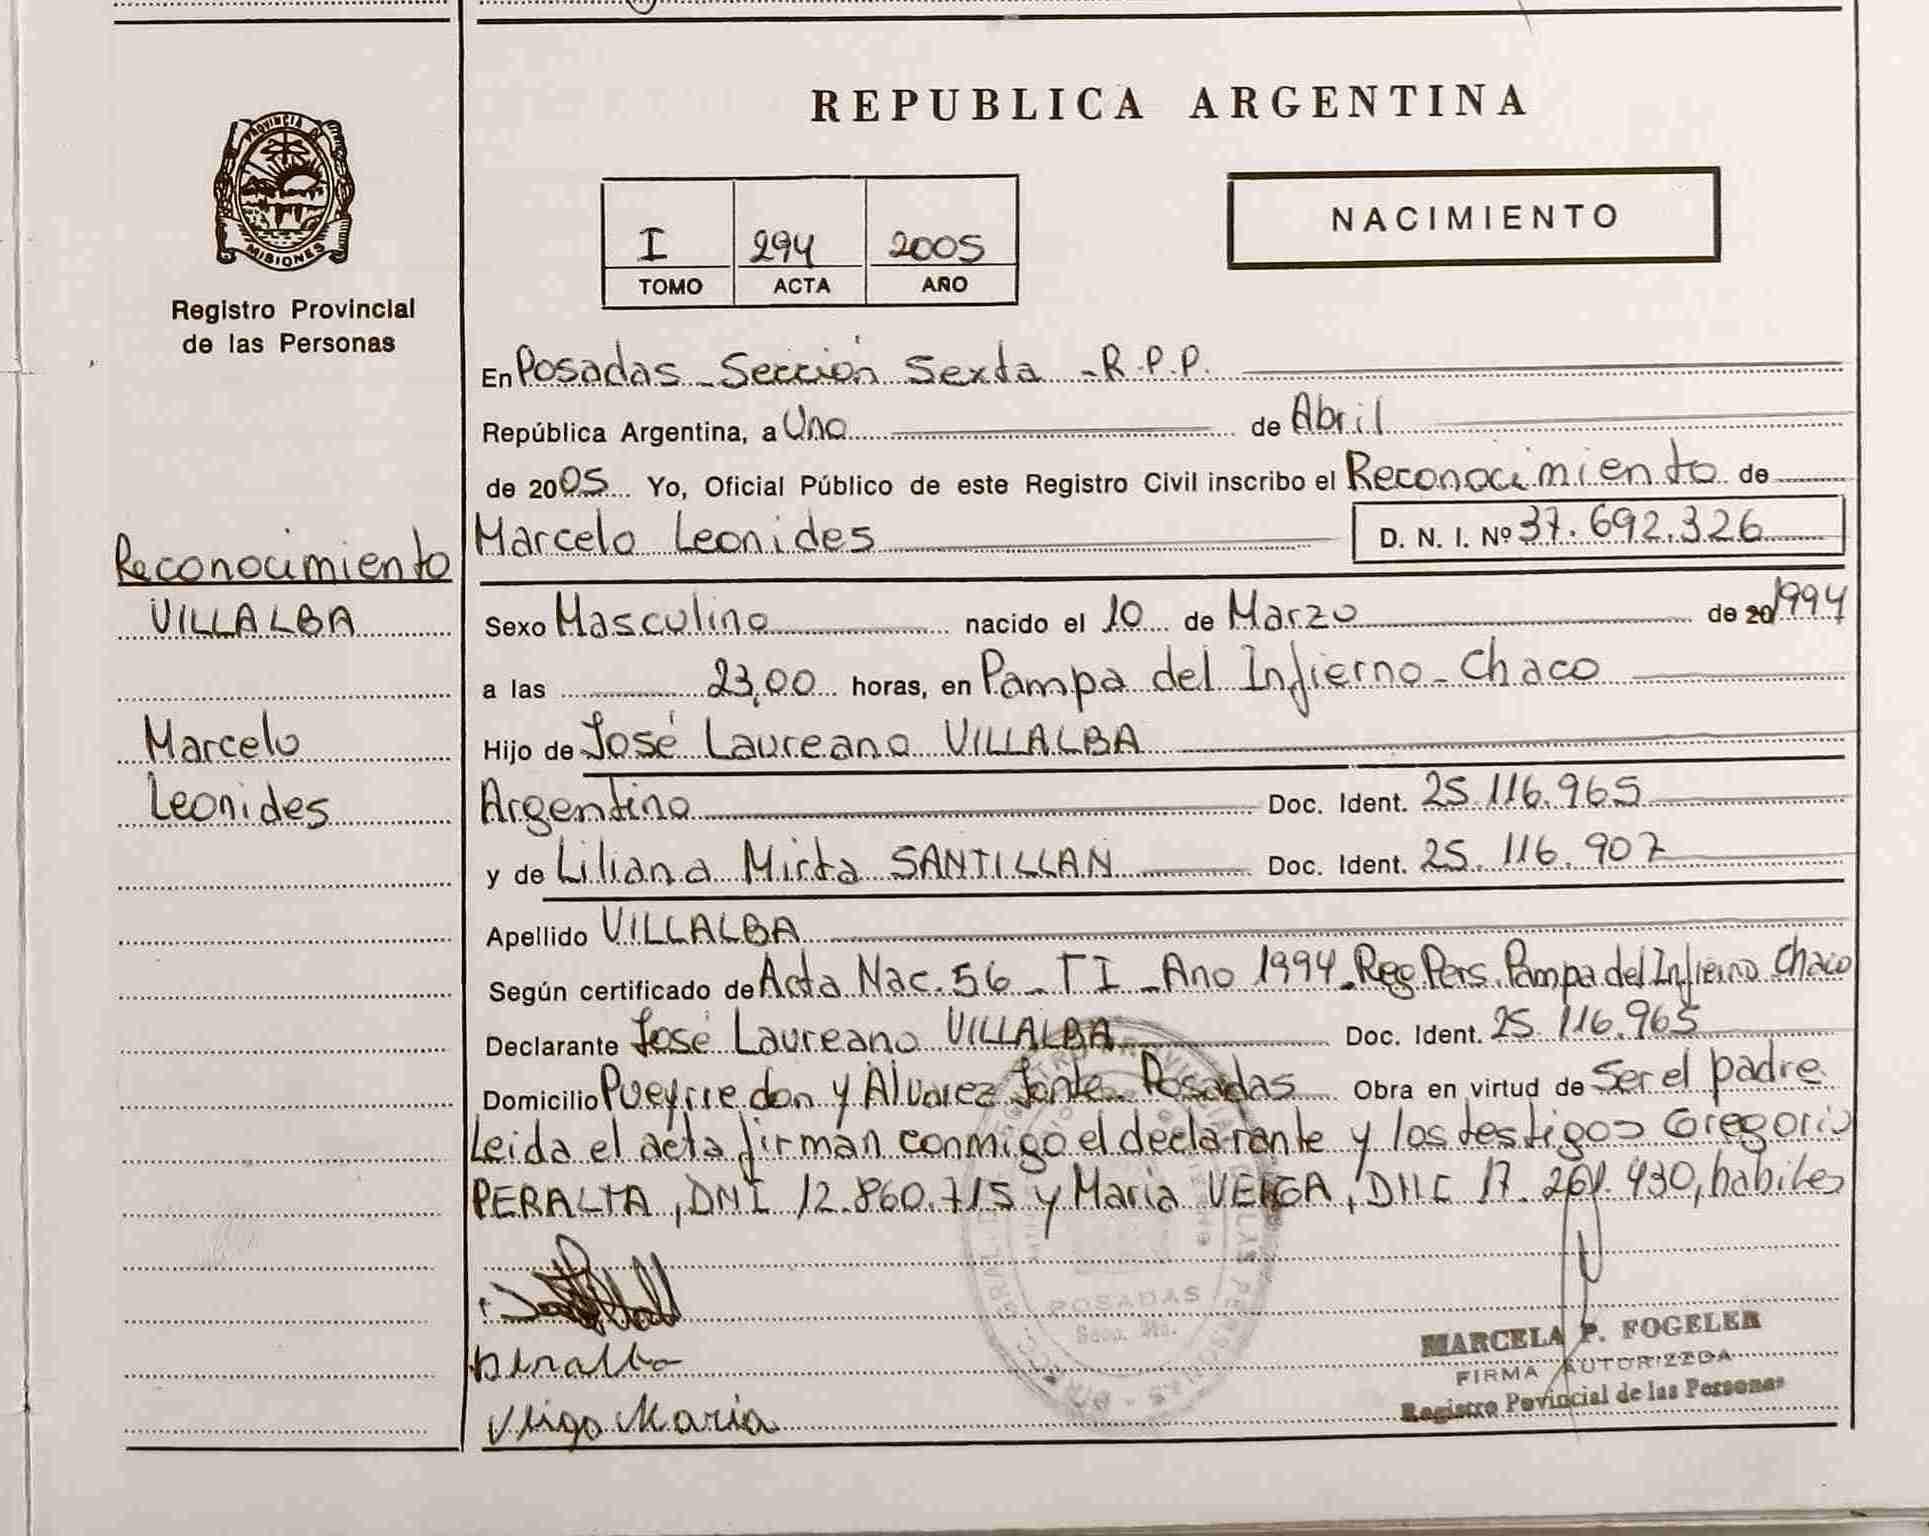 PROVINCIA DE
MISIONES
Registro Provincial
de las Personas
Reconocimiento
VILLALBA
Marcelo
Leonides
REPUBLICA ARGENTINA
I 294 2005
TOMO ACTA AÑO
NACIMIENTO
En Posadas - Sección Sexta - R.P.P.
República Argentina, a Uno de Abril
de 2005 Yo, Oficial Público de este Registro Civil inscribo el Reconocimiento de
Marcelo Leonides D. N. I. Nº 37.692.326
Sexo Masculino nacido el 10 de Marzo de 20 1994
a las 23,00 horas, en Pampa del Infierno - Chaco
Hijo de José Laureano VILLALBA
Argentino Doc. Ident. 25.116.965
y de Liliana Mirta SANTILLAN Doc. Ident. 25.116.907
Apellido VILLALBA
Según certificado de Acta Nac. 56 - T I - Año 1994 - Reg Pers. Pampa del Infierno Chaco
Declarante José Laureano VILLALBA Doc. Ident. 25.116.965
Domicilio Pueyrredon y Alvarez Jonte - Posadas Obra en virtud de Ser el padre
Leida el acta firman conmigo el declarante y los testigos Gregorio
PERALTA, DNI 12.860.715 y Maria VEIGA, DNI 17.261.430, habiles
POSADAS
Peralta
Veiga Maria
MARCELA P. FOGELER
FIRMA AUTORIZADA
Registro Povincial de las Personas